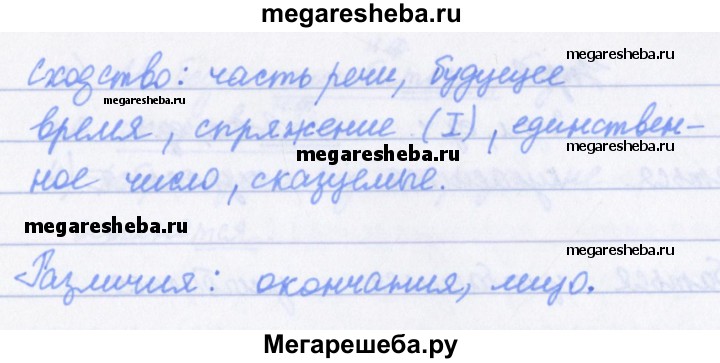 megaresheba.ru
Сходство: часть речи, будущее
megaresheba.ru
megaresheba.ru
время, спряжение (I), единствен-
megaresheba.ru
megaresheba.ru
ное число, сказуемые.
megaresheba.ru
megaresheba.ru
Различия: окончания, лицо.
Мегарешеба.ру